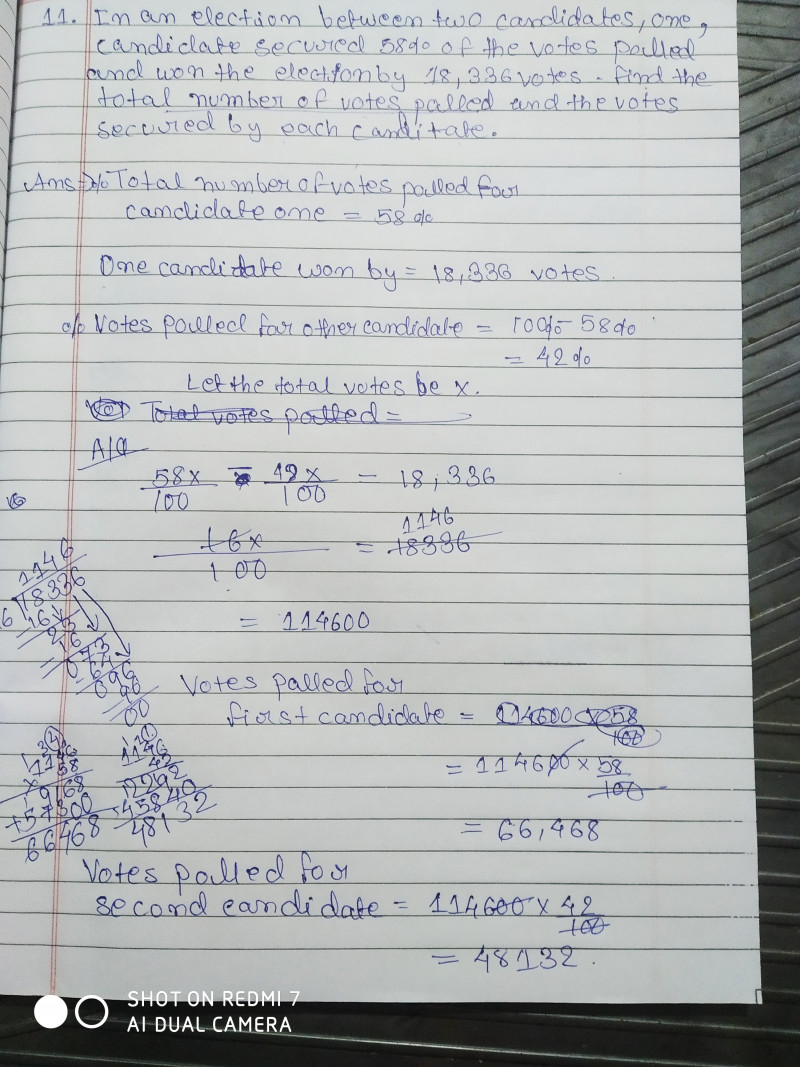 11. In an election between two candidates, one,
candidate secured 58% of the votes polled
and won the election by 18,336 votes. Find the
total number of votes palled and the votes
secured by each canditate.
Ans → % Total number of votes polled four
candidate one = 58 %
One candidate won by = 18,336 votes.
% Votes polled for other candidate = 100% - 58%
= 42%
Let the total votes be x.
Total votes polled =
A/Q
58x/100 - 42x/100 = 18,336
1146
16x/100 = 18336
= 114600
Votes palled for
first candidate = 114600 × 58/100
= 114600 × 58/100
= 66,468
Votes palled for
second candidate = 114600 × 42/100
= 48132.
1146
18336
1146
9168
+57300
66468
1146
42
2292
+45840
48132
SHOT ON REDMI 7
AI DUAL CAMERA